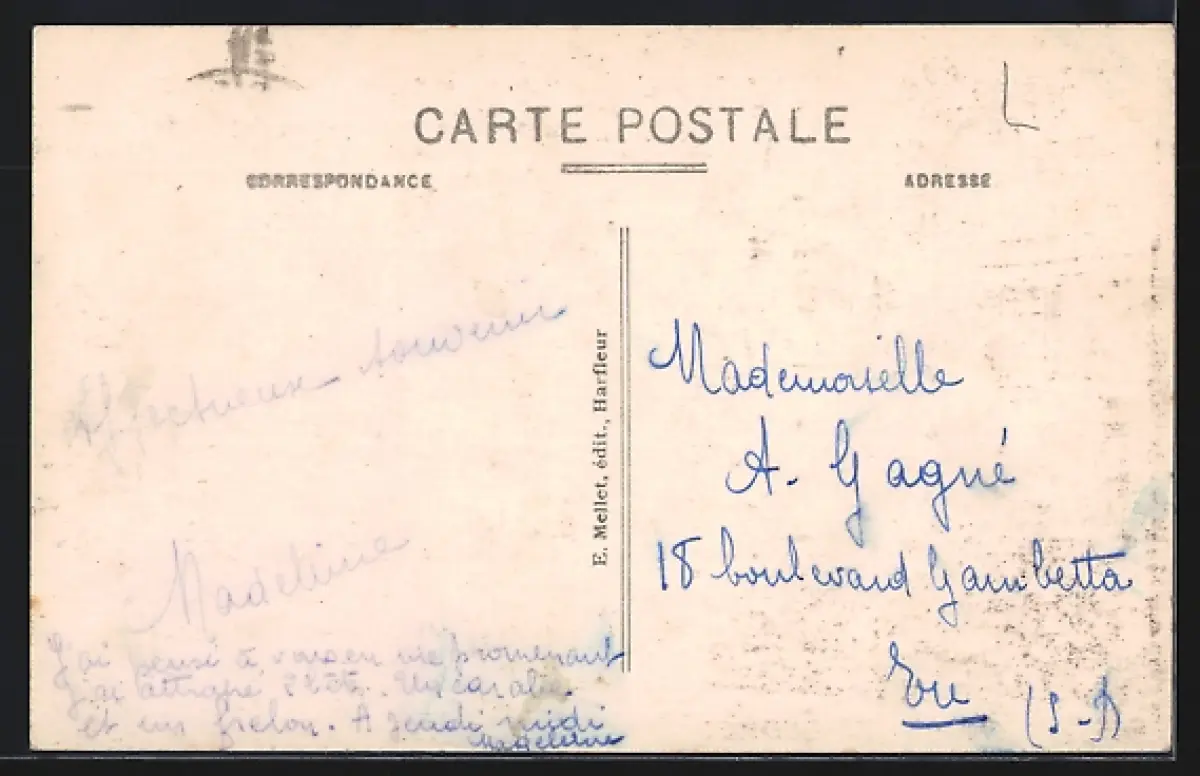 CARTE POSTALE
CORRESPONDANCE
ADRESSE
Affectueux souvenir
Madeleine
J'ai pensé à vous en me promenant
J'ai attrapé Un carabe
et un frelon. A jeudi midi
Madeleine
E. Mellet, édit., Harfleur
Mademoiselle
A. Gagné
18 boulevard Gambetta
Eu (S-I)